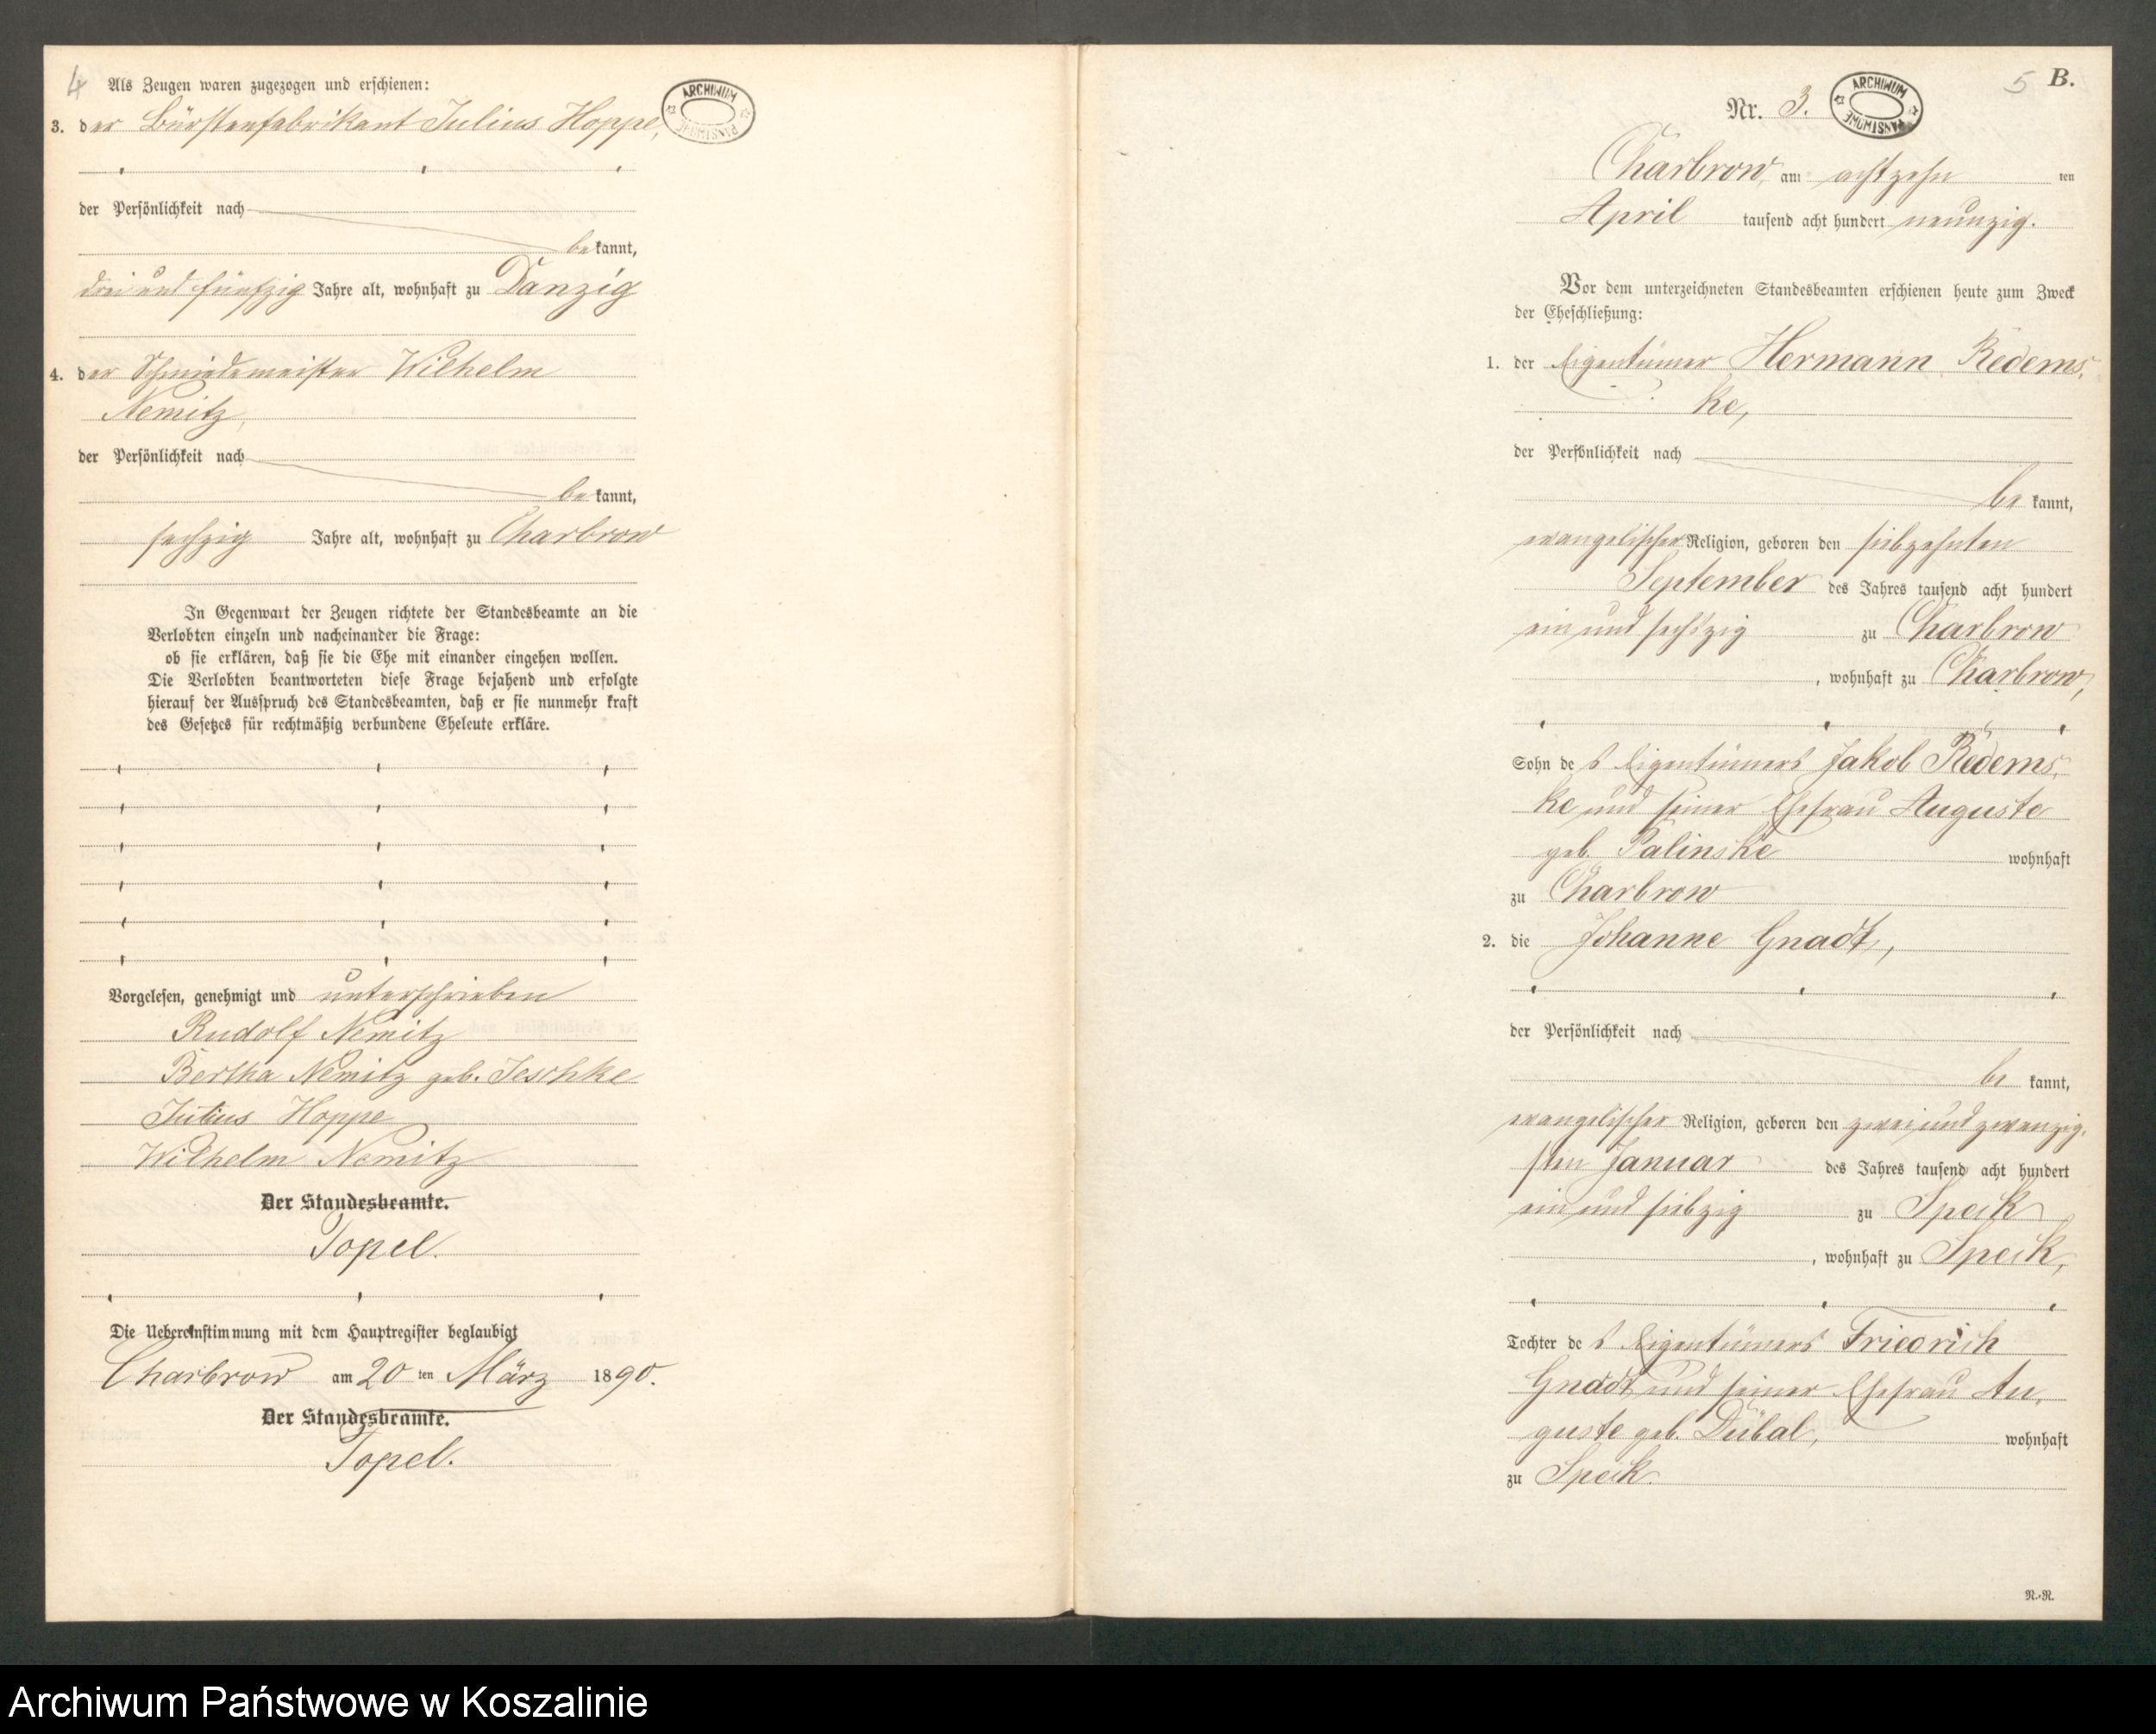 4
Als Zeugen waren zugezogen und erschienen:
3. der Bürstenfabrikant Julius Hoppe,
ARCHIWUM PAŃSTWOWE
der Persönlichkeit nach
bekannt,
drei und fünfzig Jahre alt, wohnhaft zu Danzig
4. der Schmiedemeister Wilhelm
Nemitz,
der Persönlichkeit nach
bekannt,
sechzig Jahre alt, wohnhaft zu Charbrow
In Gegenwart der Zeugen richtete der Standesbeamte an die
Verlobten einzeln und nacheinander die Frage:
ob sie erklären, daß sie die Ehe mit einander eingehen wollen.
Die Verlobten beantworteten diese Frage bejahend und erfolgte
hierauf der Ausspruch des Standesbeamten, daß er sie nunmehr kraft
des Gesetzes für rechtmäßig verbundene Eheleute erkläre.
Vorgelesen, genehmigt und unterschrieben
Rudolf Nemitz
Bertha Nemitz geb. Jeschke
Julius Hoppe
Wilhelm Nemitz
Der Standesbeamte.
Topel.
Die Uebereinstimmung mit dem Hauptregister beglaubigt
Charbrow am 20 ten März 1890.
Der Standesbeamte.
Topel.
5 B.
Nr. 3.
ARCHIWUM PAŃSTWOWE
Charbrow, am achtzehn ten
April tausend acht hundert neunzig.
Vor dem unterzeichneten Standesbeamten erschienen heute zum Zweck
der Eheschließung:
1. der Eigentümer Hermann Redems-
ke,
der Persönlichkeit nach
be kannt,
evangelischer Religion, geboren den siebzehnten
September des Jahres tausend acht hundert
ein und sechszig zu Charbrow
, wohnhaft zu Charbrow,
Sohn des Eigentümers Jakob Redems-
ke und seiner Ehefrau Auguste
geb. Palinske wohnhaft
zu Charbrow
2. die Johanne Gnadt,
der Persönlichkeit nach
be kannt,
evangelischer Religion, geboren den zwei und zwanzig-
sten Januar des Jahres tausend acht hundert
ein und siebzig zu Speck
, wohnhaft zu Speck,
Tochter des Eigentümers Friedrich
Gnadt und seiner Ehefrau Au-
guste geb. Dübal, wohnhaft
zu Speck.
N.-R.
Archiwum Państwowe w Koszalinie